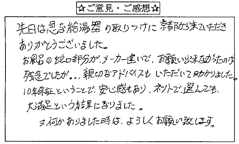 ☆ご意見・ご感想☆
先日は急な給湯器の取りつけに京都から来ていただき
ありがとうございました。
お風呂の蛇口部分が、メーカー違いで、お願い出来なかったのは
残念でしたが…親切なアドバイスもいただいて助かりました。
10年保証ということで、安心感もあり、ネットで選んでも、
大満足という結果になりました。
又何かありました時は、よろしくお願い致します。